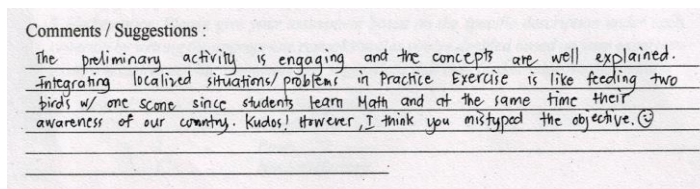 Comments / Suggestions :
The preliminary activity is engaging and the concepts are well explained.
Integrating localized situations/problems in Practice Exercise is like feeding two
birds w/ one scone since students learn Math and at the same time their
awareness of our country. Kudos! However, I think you mistyped the objective. ☺